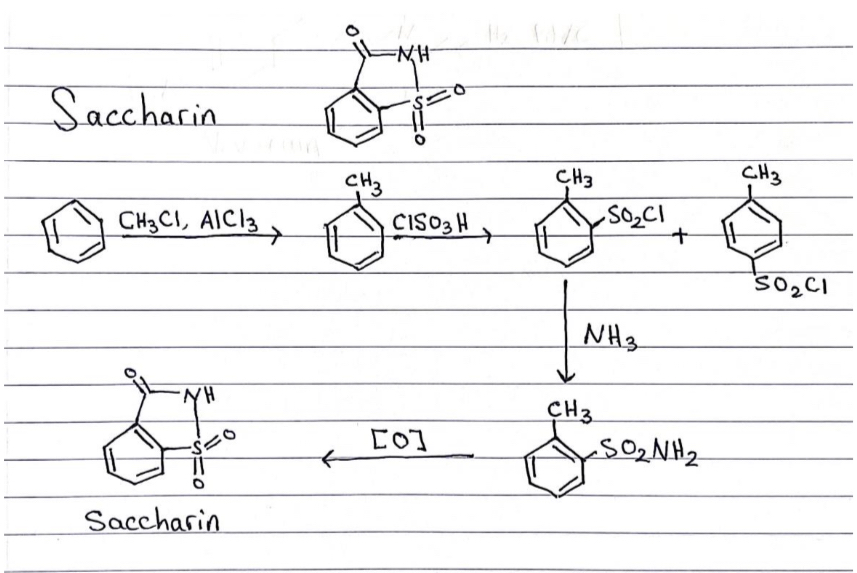 O
NH
Saccharin
S
O
O
CH3Cl, AlCl3
CH3
ClSO3H
CH3
SO2Cl
+
CH3
SO2Cl
NH3
O
NH
S
O
O
[O]
CH3
SO2NH2
Saccharin